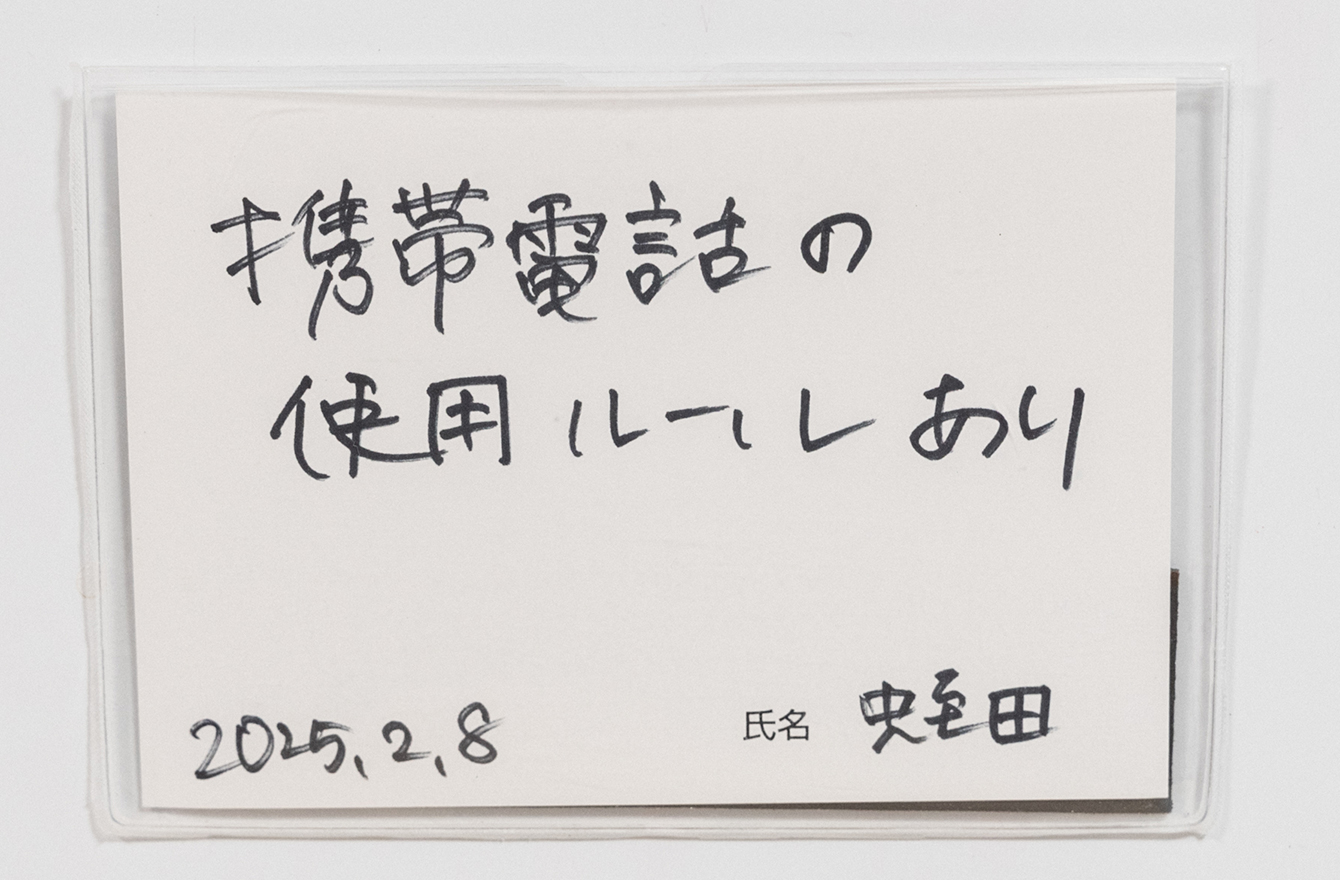 携帯電話の
使用ルールあり
2025.2.8
氏名 蛭田